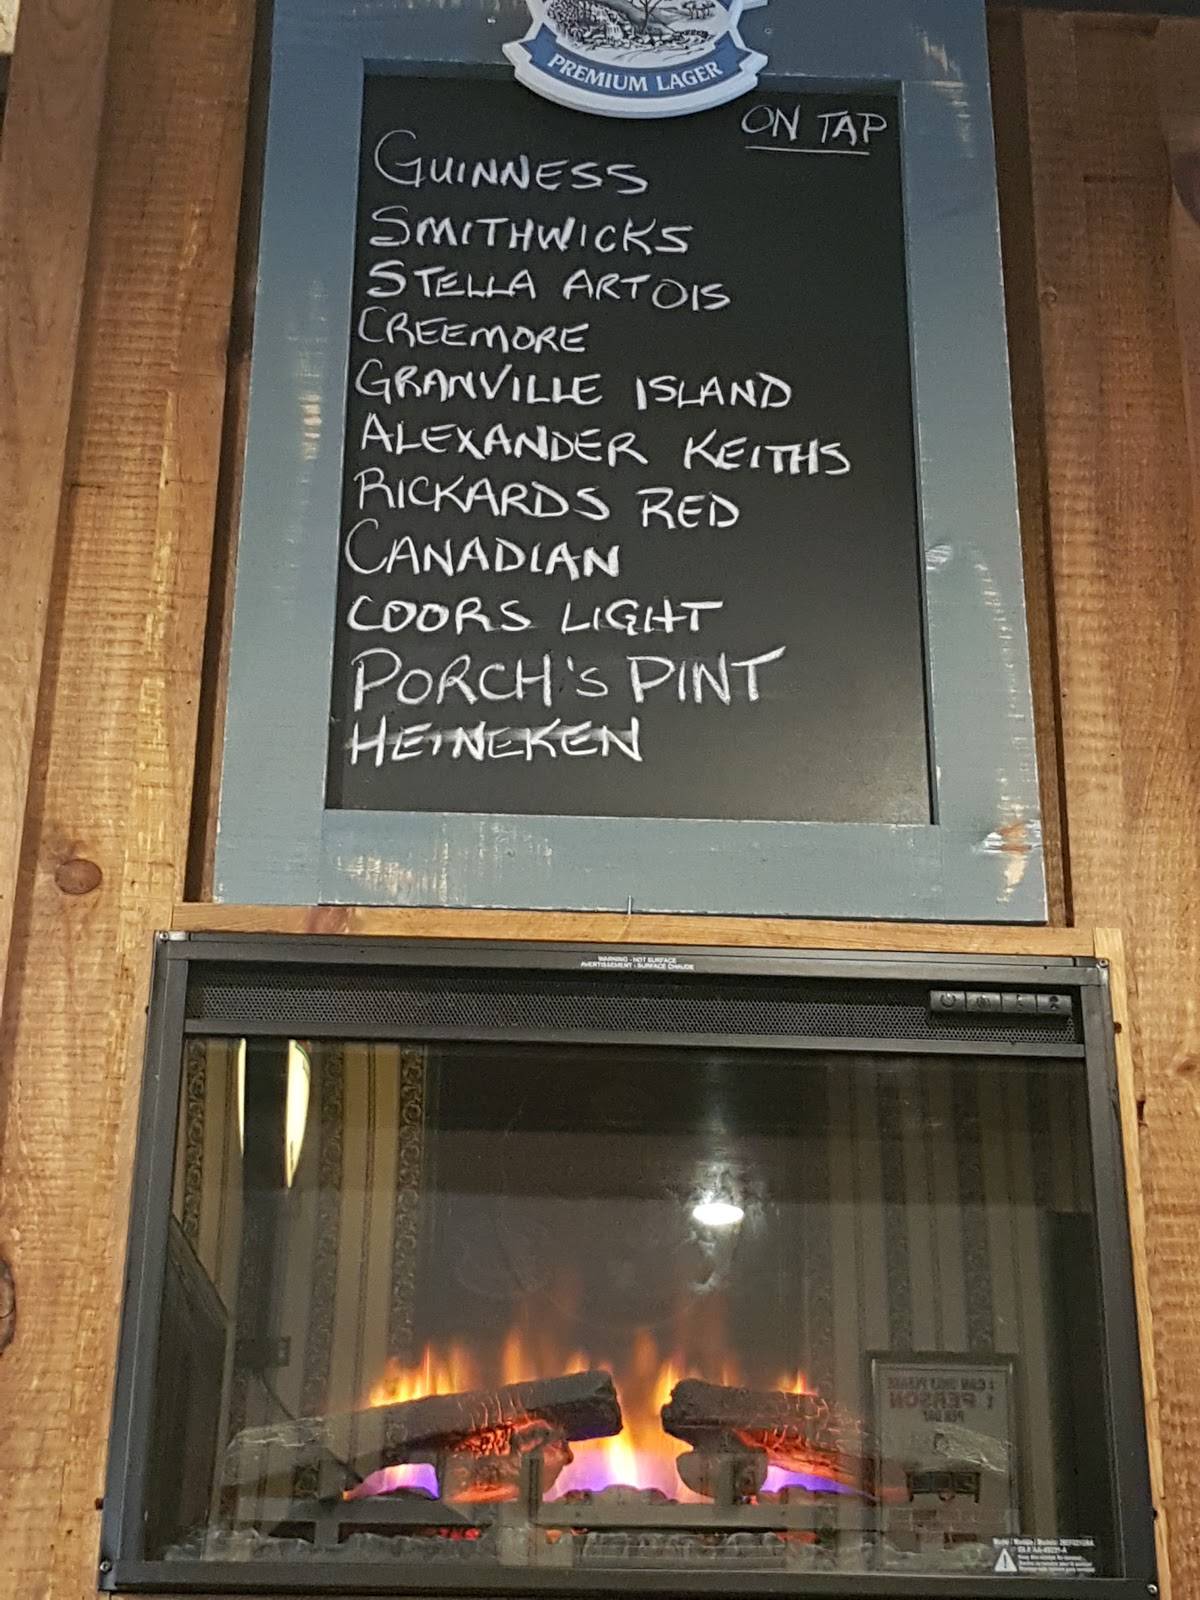 PREMIUM LAGER
ON TAP
GUINNESS
SMITHWICKS
STELLA ARTOIS
CREEMORE
GRANVILLE ISLAND
ALEXANDER KEITHS
RICKARDS RED
CANADIAN
COORS LIGHT
PORCH'S PINT
HEINEKEN
WARNING - HOT SURFACE
AVERTISSEMENT - SURFACE CHAUDE
PERSON